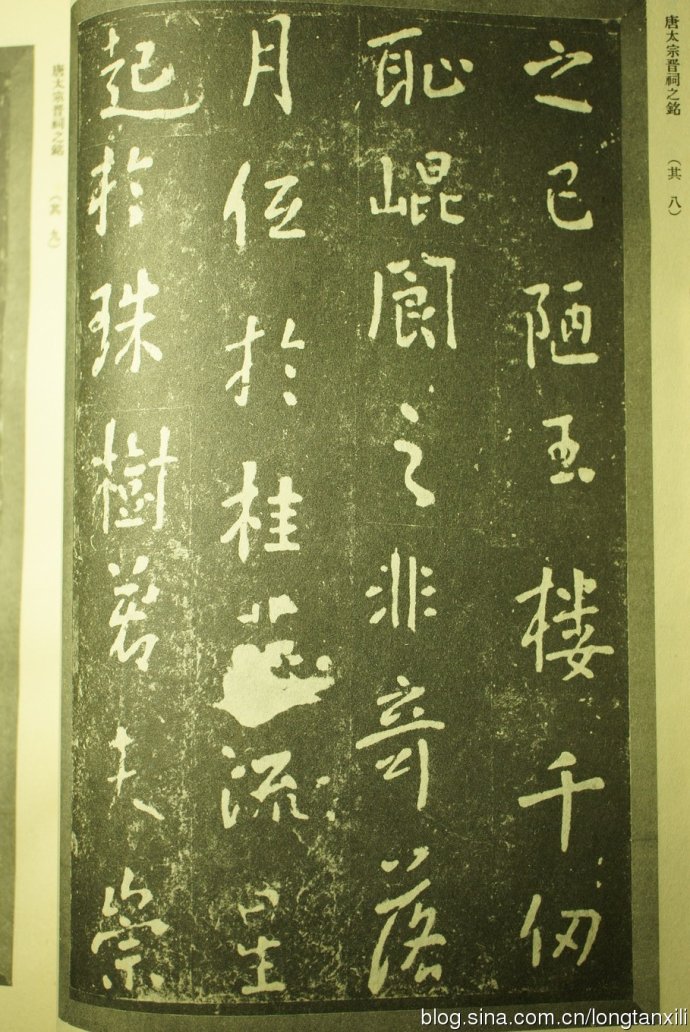 唐太宗晋祠之銘 （其 八）
之已陋玉樓千仞
恥崐閬之非奇落
月低於桂流星
起於珠樹若夫崇
唐太宗晋祠之銘 （其 九）
blog.sina.com.cn/longtanxili